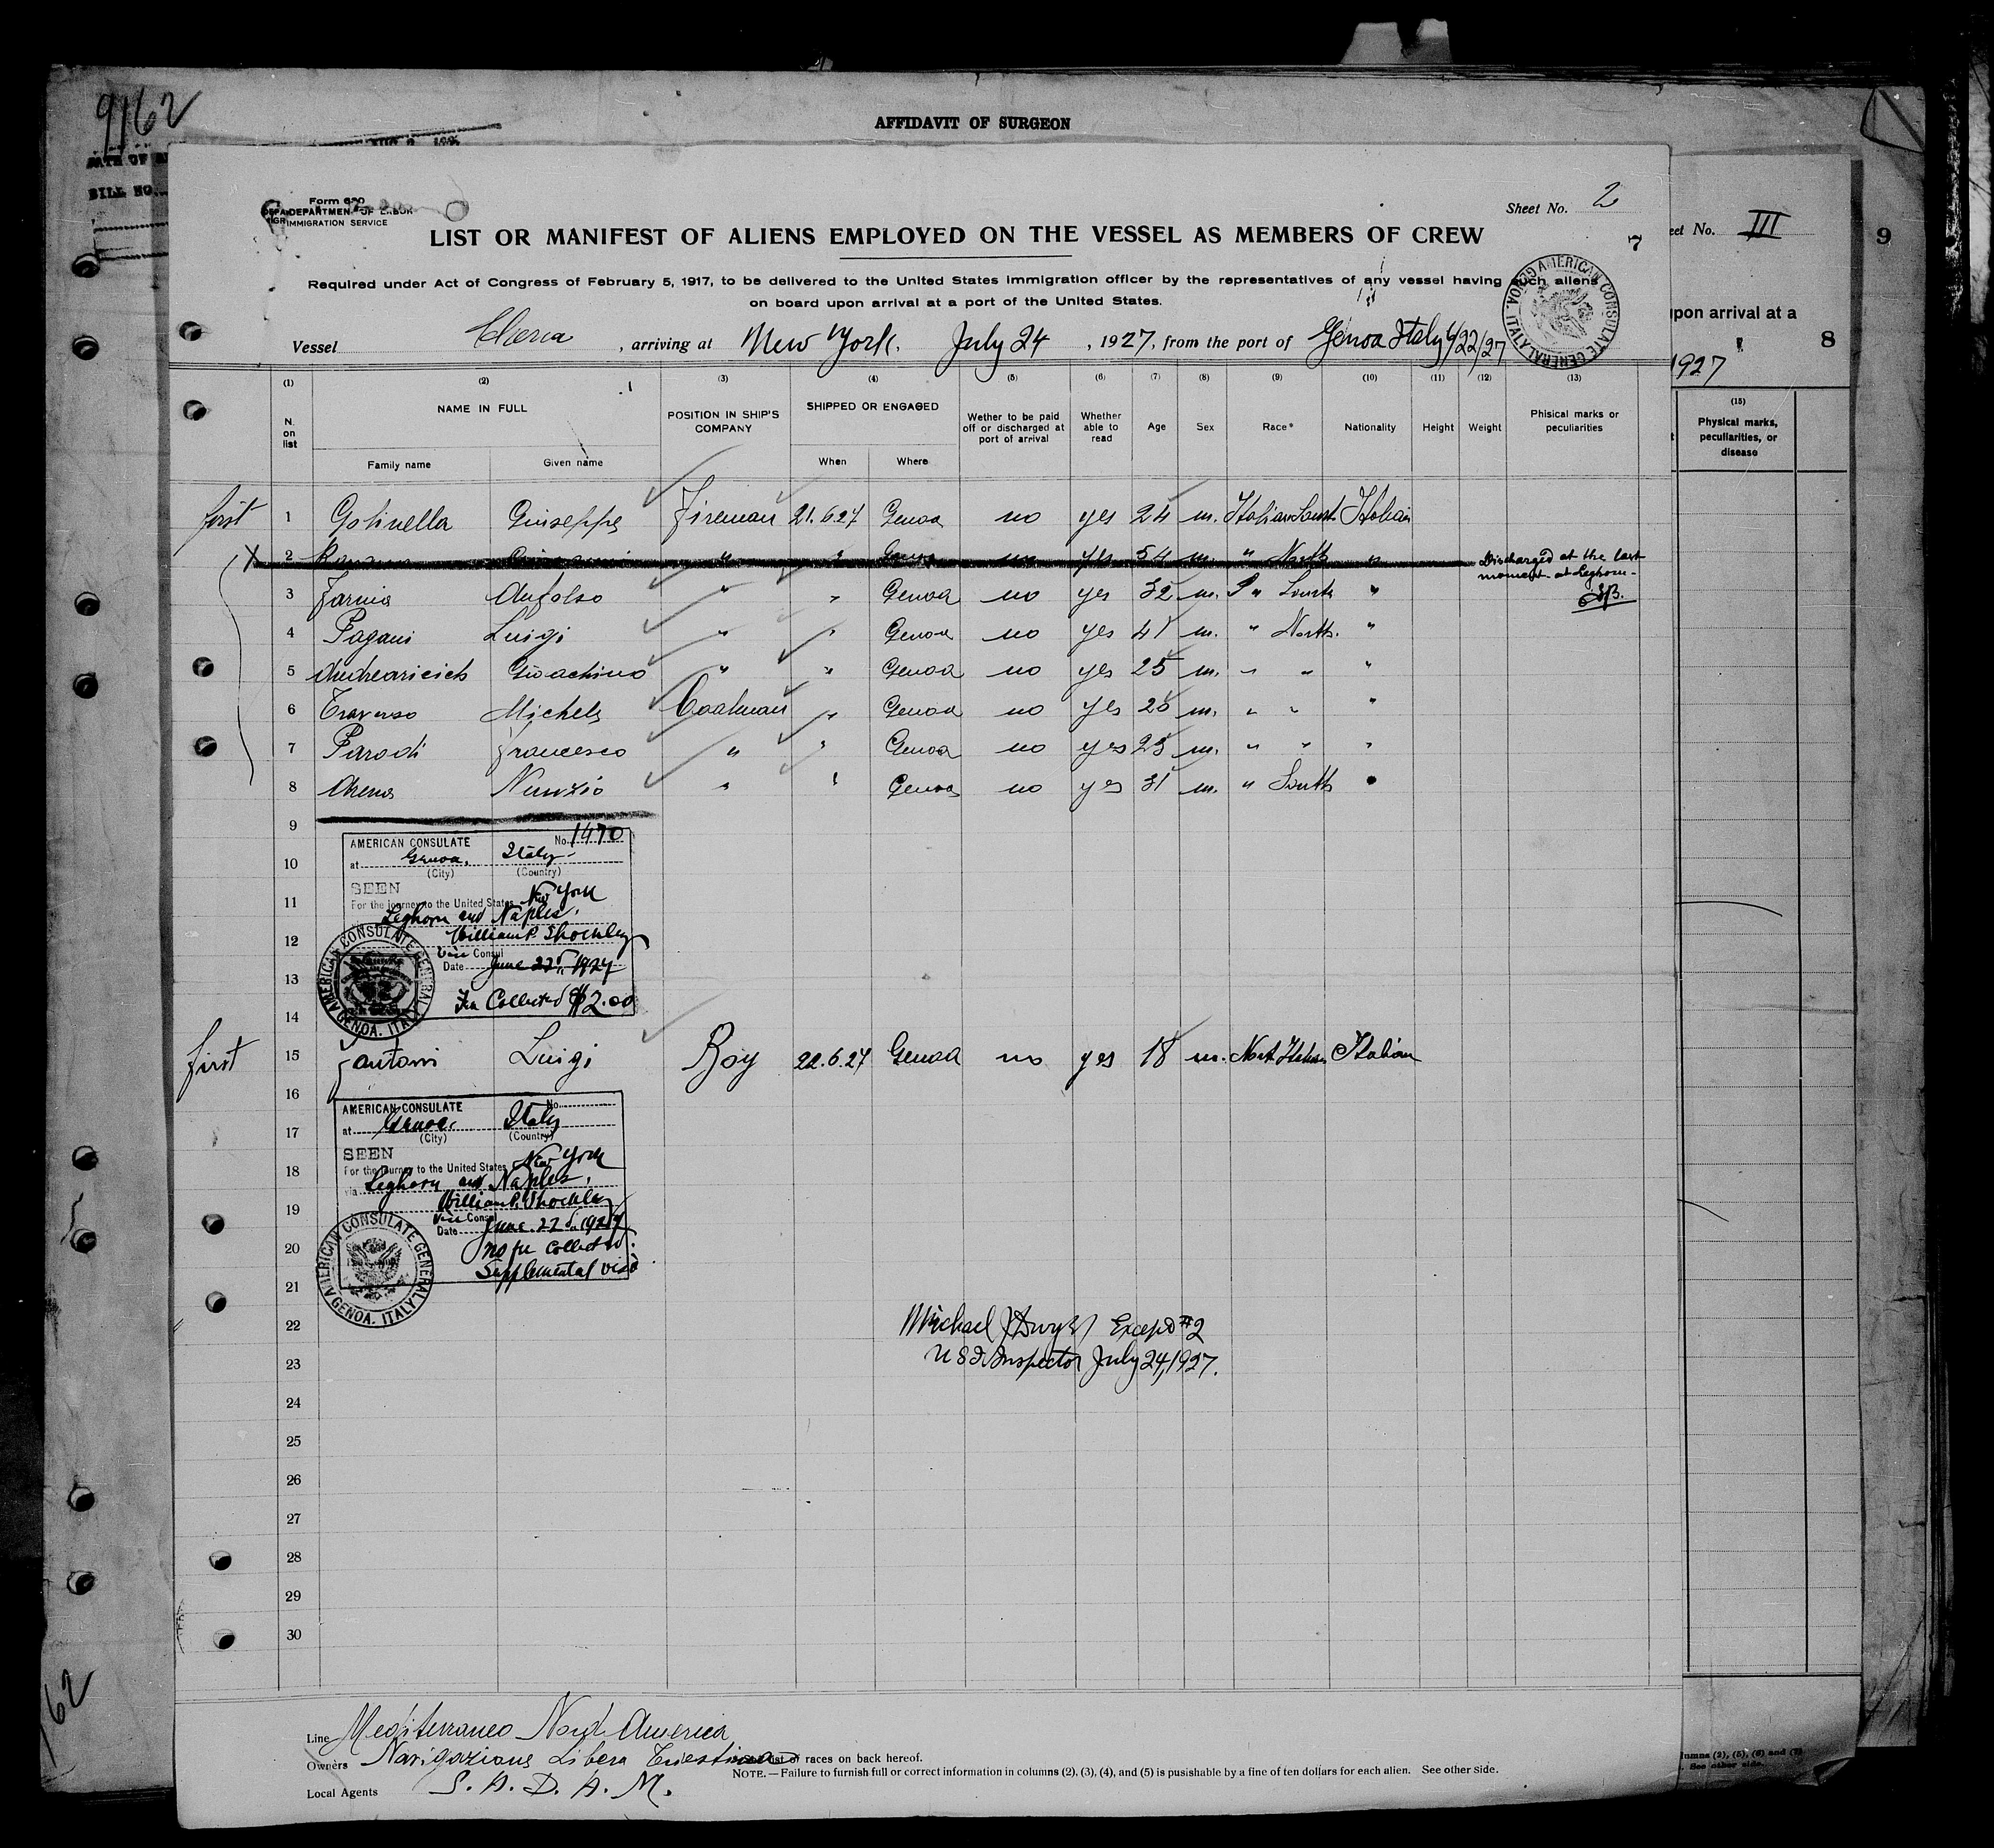 9162
AFFIDAVIT OF SURGEON
BILL NO.
Form 680
DEPARTMENT OF LABOR
IMMIGRATION SERVICE
Sheet No. 2
LIST OR MANIFEST OF ALIENS EMPLOYED ON THE VESSEL AS MEMBERS OF CREW
7
eet No. III
9
Required under Act of Congress of February 5, 1917, to be delivered to the United States immigration officer by the representatives of any vessel having such aliens
on board upon arrival at a port of the United States.
AMERICAN CONSULATE GENERAL GENOA, ITALY
upon arrival at a
8
Vessel Clara, arriving at New York. July 24, 1927, from the port of Genoa Italy 6/22/27
1927
(1) (2) (3) (4) (5) (6) (7) (8) (9) (10) (11) (12) (13)
(15)
N. on list NAME IN FULL POSITION IN SHIP'S COMPANY SHIPPED OR ENGAGED Wether to be paid off or discharged at port of arrival Whether able to read Age Sex Race* Nationality Height Weight Phisical marks or peculiarities
Physical marks, peculiarities, or disease
Family name Given name When Where
first 1 Golinella Giuseppe Fireman 21.6.27 Genoa no yes 24 m. Italian South Italian
X 2 " " Genoa no yes 54 m. " North " Discharged at the last
moment at Leghorn.
3 Farina " " Genoa no yes 32 m. " South "
4 Pagani Luigi " " Genoa no yes 41 m. " North. "
5 Andrearicich Gioachino " " Genoa no yes 25 m. " " "
6 Traverso Michele Coalman " Genoa no yes 26 m. " " "
7 Parodi Francesco " " Genoa no yes 25 m. " " "
8 Arena Nunzio " " Genoa no yes 31 m. " South
9
10
11
12
13
14
AMERICAN CONSULATE No. 1470
at Genoa, Italy
(City) (Country)
SEEN
For the journey to the United States New York
Leghorn and Naples.
William P. Shockley
Vice Consul
Date June 22d, 1927
Fee Collected $2.00
AMERICAN CONSULATE GENERAL GENOA, ITALY
first 15 Fantoni Luigi Boy 22.6.27 Genoa no yes 18 m. North Italian Italian
16
17
18
19
20
21
AMERICAN CONSULATE No.
at Genoa, Italy
(City) (Country)
SEEN
For the journey to the United States New York
via Leghorn and Naples.
William P. Shockley
Vice Consul
Date June 22d, 1927
no fee collected.
Supplemental visa
AMERICAN CONSULATE GENERAL GENOA, ITALY
22
Michael J Dwyer Except #2
23
U S I Inspector July 24, 1927.
24
25
26
27
28
29
30
162
Line Mediterraneo Nord America
Owners Navigazione Libera Triestina
list of races on back hereof.
NOTE.—Failure to furnish full or correct information in columns (2), (3), (4), and (5) is pusishable by a fine of ten dollars for each alien. See other side.
Local Agents S. A. D. A. M.
lumns (2), (5), (6) and (7)
See other side.